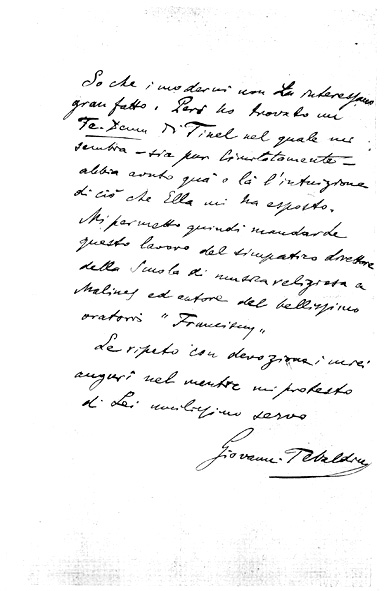 So che i moderni non La interessano
gran fatto. Però ho trovato un
Te-Deum di Tinel nel quale mi
sembra – sia pur limitatamente –
abbia avuto quà e là l'intuizione
di ciò che Ella mi ha esposto.
Mi permetto quindi mandarle
questo lavoro del simpatico direttore
della Scuola di musica religiosa a
Malines ed autore del bellissimo
oratorio "Franciscus"
Le ripeto con devozione i miei
auguri nel mentre mi protesto
di Lei umilissimo servo
Giovanni Tebaldini